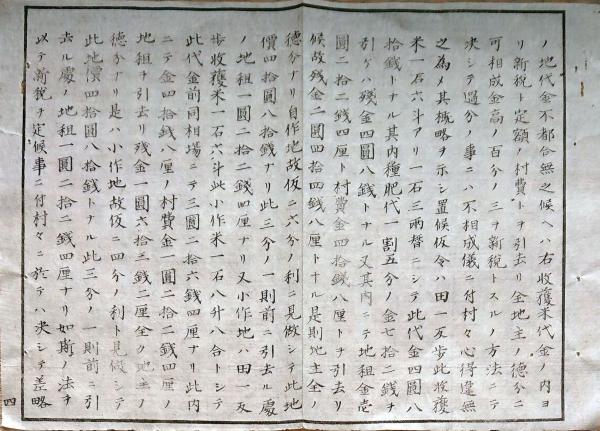 ノ地代金不都合無之候ヘハ右収獲米代金ノ内ヨ
リ新税ト定額ノ村費トヲ引去リ全地主ノ徳分ニ
可相成金高ノ百分ノ三ヲ新税トスルノ方法ニテ
決シテ過分ノ事ニハ不相成儀ニ付村々心得違無
之為メ其概略ヲ示シ置候仮令ハ田一反歩此収獲
米一石六斗アリ一石三両替ニシテ此代金四圓八
拾銭トナル其内種肥代一割五分ノ金七拾二銭ヲ
引ケハ残金四圓八銭トナル又其内ニテ地租金壱
圓二拾二銭四厘ト村費金四拾銭八厘トヲ引去リ
候故残金二圓四拾四銭八厘トナル是則地主全ノ
徳分ナリ自作地故仮ニ六分ノ利ニ見做シテ此地
價四拾圓八拾銭ナリ此三分ノ一則前ニ引去ル處
ノ地租一圓二拾二銭四厘ナリ又小作地ハ田一反
歩收獲米一石六斗此小作米一石八升八合トシテ
此代金前同相場ニテ三圓二拾六銭四厘ナリ此内
ニテ金四拾銭八厘ノ村費金一圓二拾二銭四厘ノ
地租ヲ引去リ残金一圓六拾三銭二厘全ク地主ノ
徳分ナリ是ハ小作地故仮ニ四分ノ利ト見做シテ
此地價四拾圓八拾銭トナル此三分ノ一則前ニ引
去ル處ノ地租一圓二拾二銭四厘ナリ如斯ノ法ヲ
以テ新税ヲ定候事ニ付村々ニ於テハ決シテ差略
四